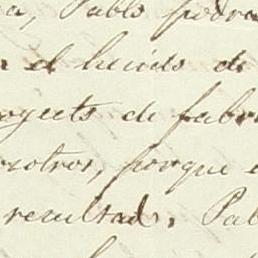 a, Pablo podra
el heints de
oyects de fabr
osotros, porque e
resultad. Pab